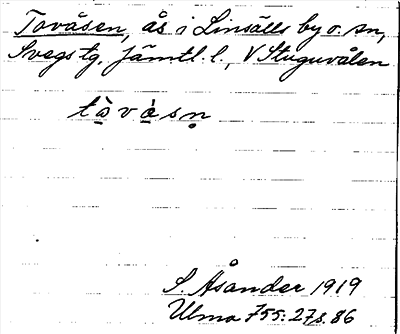 Tovåsen, ås i Linsälls by o. sn,
Svegs tg, Jämtl. l., V Stuguvålen
tὰvάsn̥
S. Åsander 1919
Ulma 755:27 s. 86